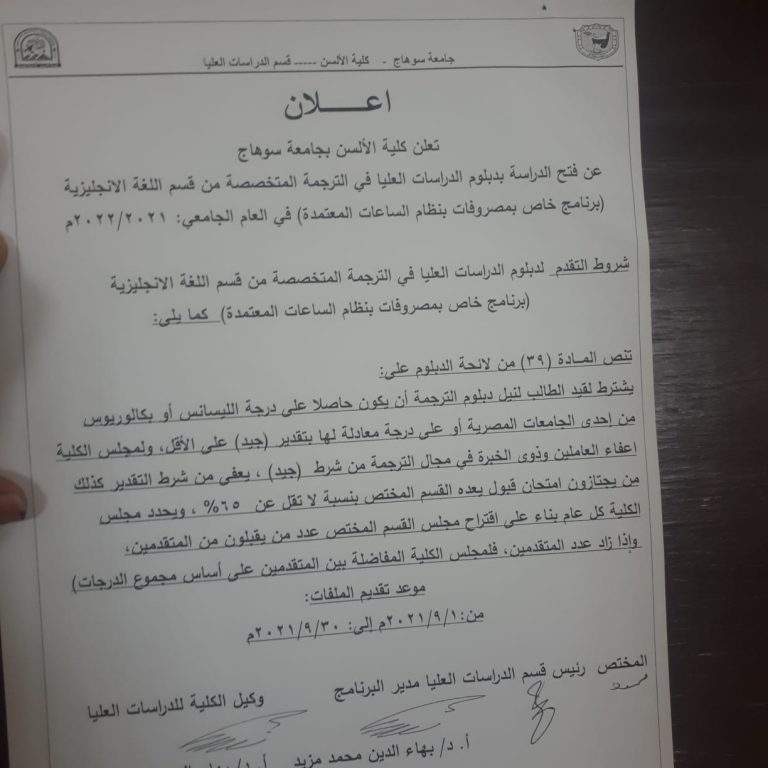 جامعة سوهاج - كلية الألسن ----- قسم الدراسات العليا
اعـــلان
تعلن كلية الألسن بجامعة سوهاج
عن فتح الدراسة بدبلوم الدراسات العليا في الترجمة المتخصصة من قسم اللغة الانجليزية
(برنامج خاص بمصروفات بنظام الساعات المعتمدة) في العام الجامعي: ٢٠٢٢/٢٠٢١م
شروط التقدم لدبلوم الدراسات العليا في الترجمة المتخصصة من قسم اللغة الانجليزية
(برنامج خاص بمصروفات بنظام الساعات المعتمدة) كما يلى:
تنص المـادة (٣٩) من لائحة الدبلوم على:
يشترط لقيد الطالب لنيل دبلوم الترجمة أن يكون حاصلا على درجة الليسانس أو بكالوريوس
من إحدى الجامعات المصرية أو على درجة معادلة لها بتقدير (جيد) على الأقل، ولمجلس الكلية
اعفاء العاملين وذوى الخبرة في مجال الترجمة من شرط (جيد) ، يعفى من شرط التقدير كذلك
من يجتازون امتحان قبول يعده القسم المختص بنسبة لا تقل عن ٦٥% ، ويحدد مجلس
الكلية كل عام بناء على اقتراح مجلس القسم المختص عدد من يقبلون من المتقدمين،
وإذا زاد عدد المتقدمين، فلمجلس الكلية المفاضلة بين المتقدمين على أساس مجموع الدرجات)
موعد تقديم الملفات:
من: ٢٠٢١/٩/١م إلى: ٢٠٢١/٩/٣٠م
المختص رئيس قسم الدراسات العليا مدير البرنامج وكيل الكلية للدراسات العليا
أ.د/ بهاء الدين محمد مزيد